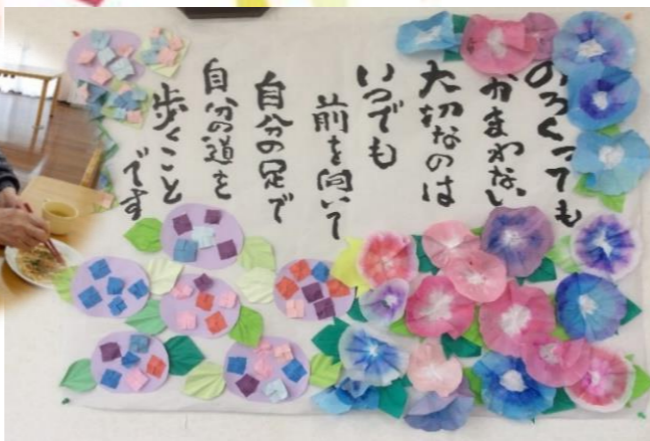 のろくっても
かまわない
大切なのは
いつでも
前を向いて
自分の足で
自分の道を
歩くこと
です